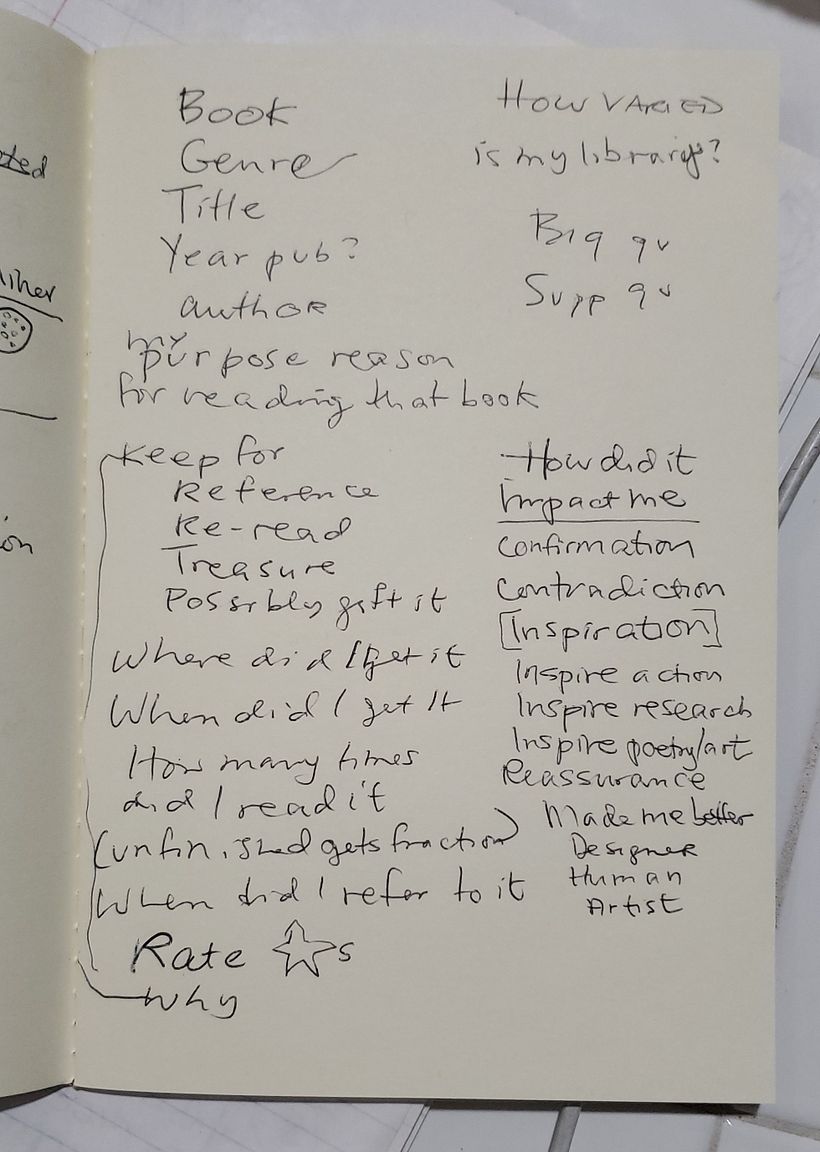 Book
Genre
Title
Year pub?
author
my
purpose reason
for reading that book
Keep for
Reference
Re-read
Treasure
Possibly gift it
Where did I get it
When did I get it
How many times
did I read it
(unfinished gets fraction)
When did I refer to it
Rate ☆s
Why
How VARIED
is my library?
Big qu
Supp qu
How did it
impact me
confirmation
contradiction
[Inspiration]
Inspire action
Inspire research
Inspire poetry/art
Reassurance
Made me better
Designer
Human
Artist